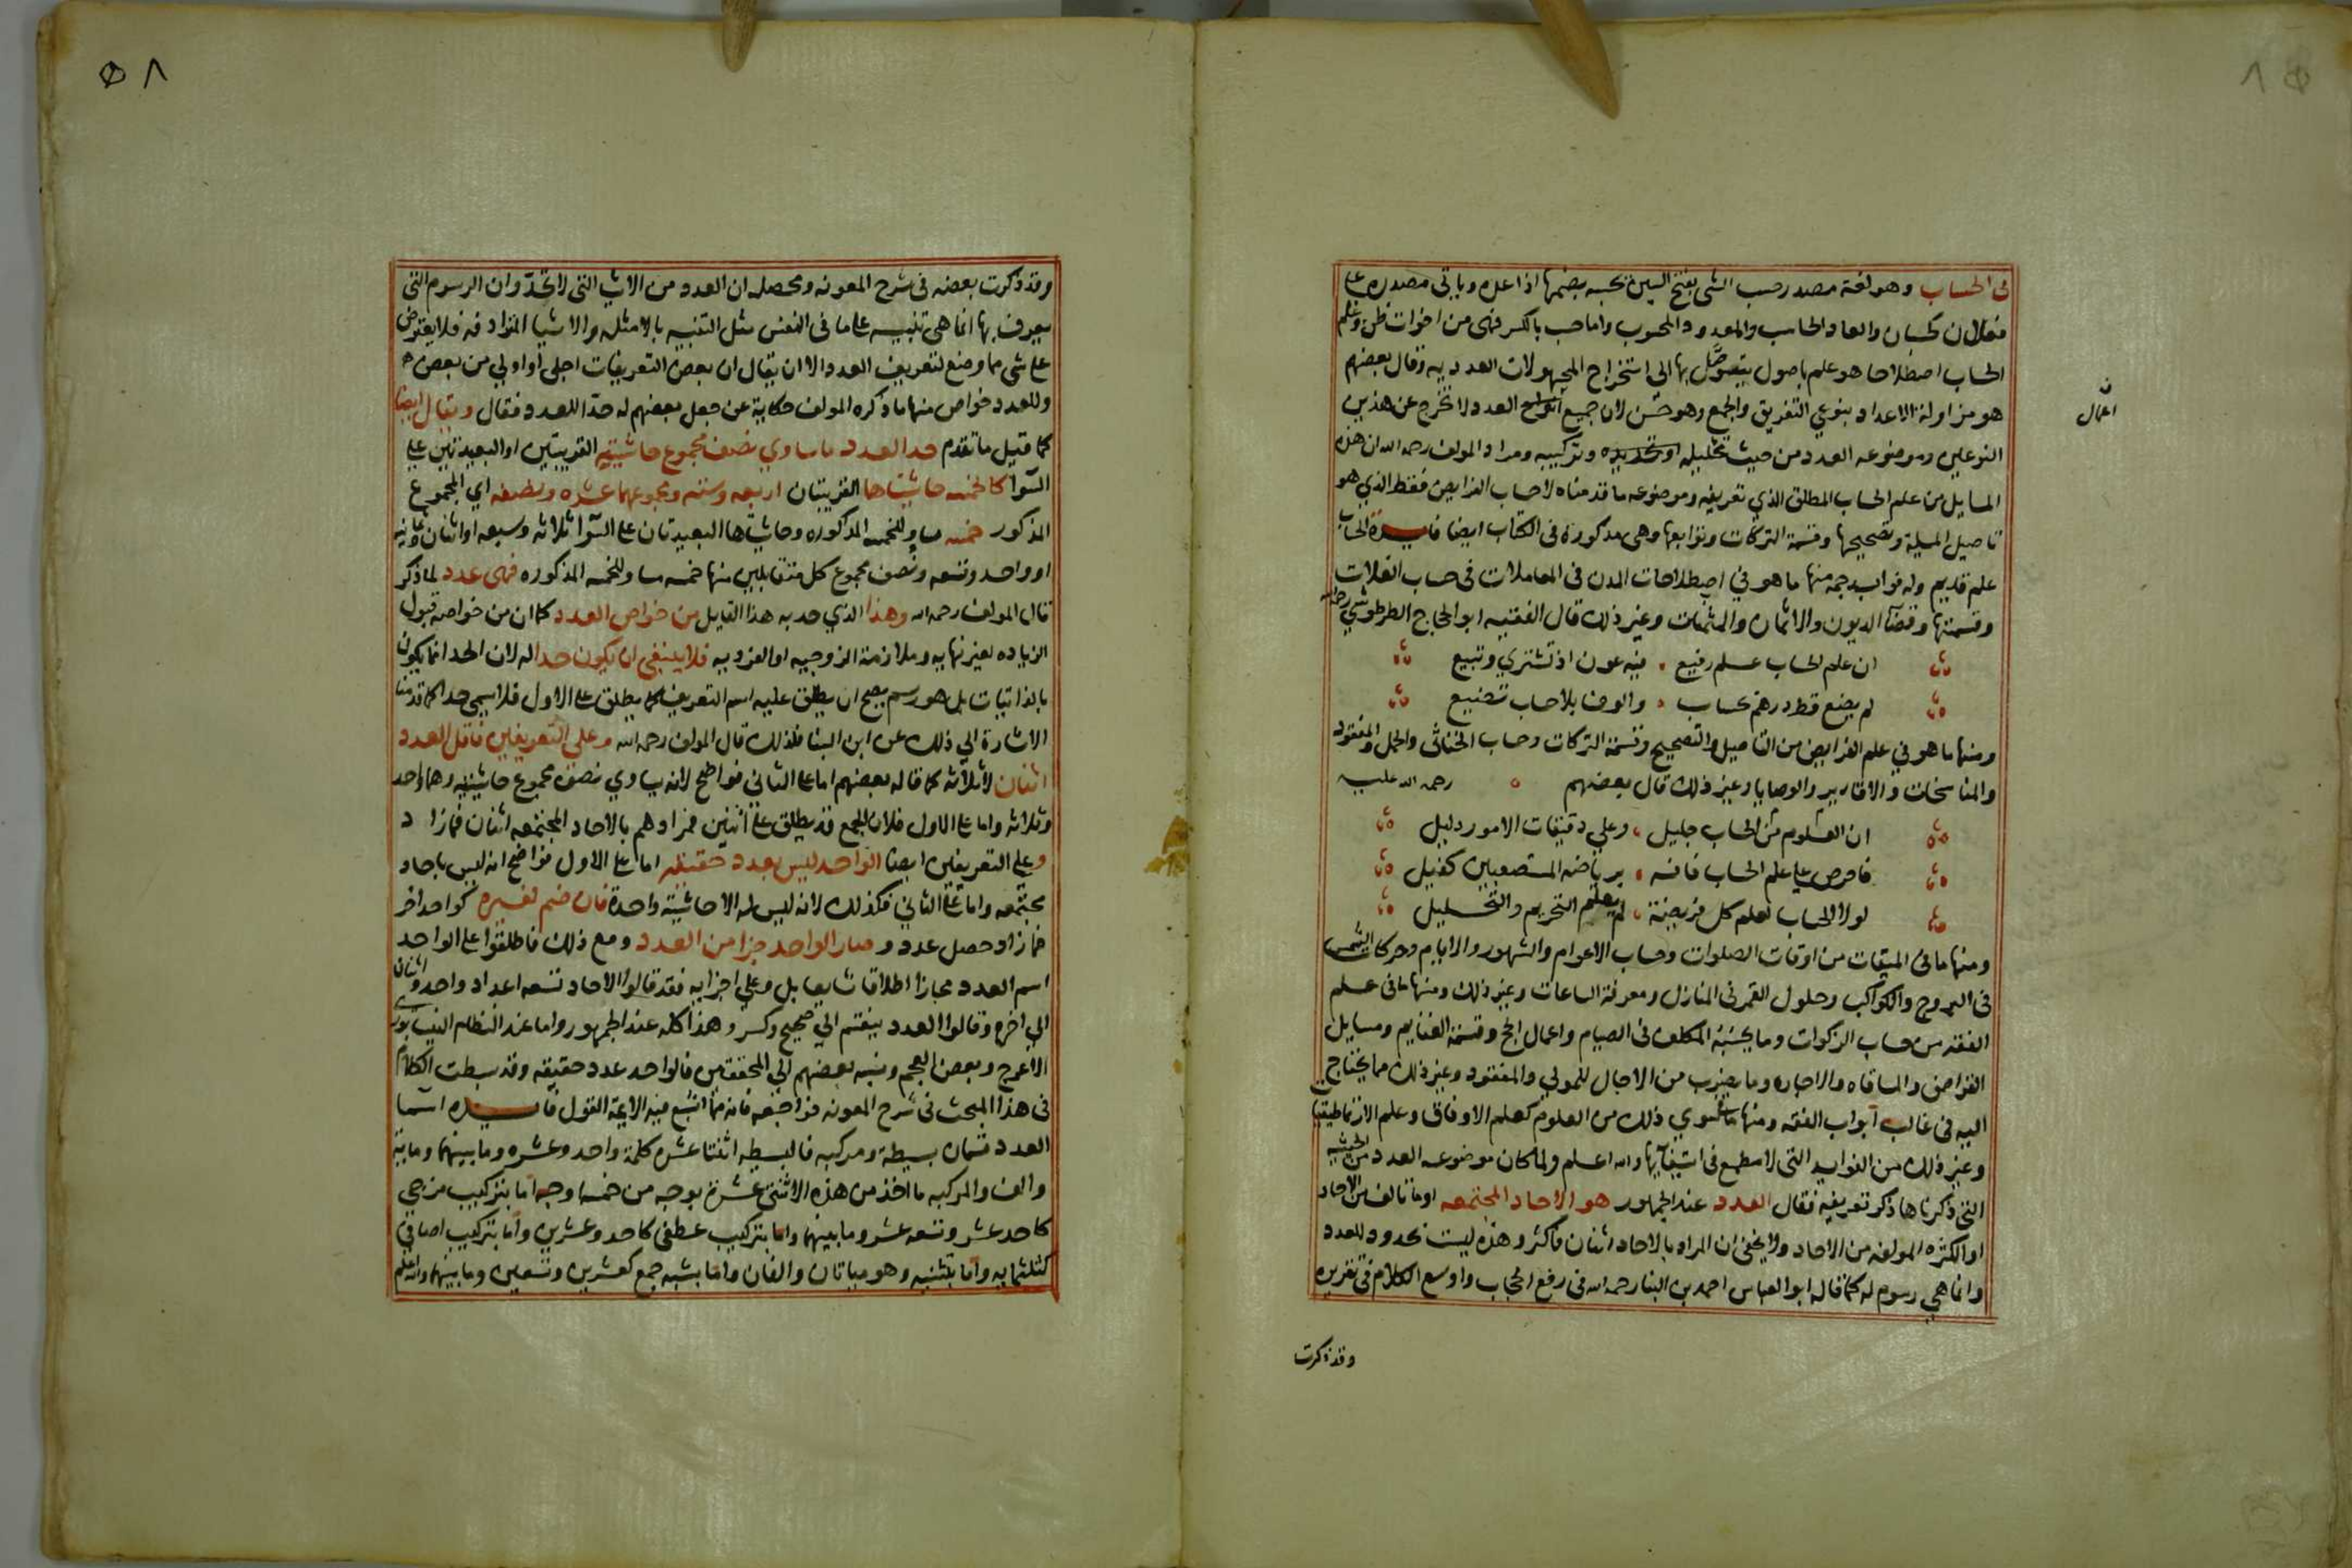 في الحساب وهو لغة مصدر حسب الشي بفتح السين يحسبه بضمها اذا عده وياتي مصدره على
فعلان كحسبان والعاد الحاسب والمعدود المحسوب واما حسب بالكسر فهي من اخوات ظن وعلم
الحساب اصطلاحا هو علم باصول يتوصل بها الى استخراج المجهولات العدديه وقال بعضهم
هو مزاولة الاعداد بنوعي التفريق والجمع وهو حسن لان جميع انواع العدد لا تخرج عن هذين
ن
اعمال
النوعين وموضوعه العدد من حيث تحليله وتركيبه ومراد المولف رحمه الله ان هذه
المسايل من علم الحساب المطلق الذي تعريفه وموضوعه ما قدمناه لا حساب الفرايض فقط الذي هو
تاصيل المسيلة وتصحيحها وقسمة التركات وتوابعها وهي مذكورة في الكتاب ايضا فايدة الحساب
علم قديم وله فوايد جمه منها ما هو في اصطلاحات المدن في المعاملات في حساب الغلات
وقسمتها وقضآ الديون والاثمان والمثمنات وغير ذلك قال الفقيه ابو الحجاج الطرطوشي رحمه
ان علم الحساب علم رفيع فيه عون اذ تشتري وتبيع
لم يضع قط درهم بحساب والوف بلا حساب تضيع
ومنها ما هو في علم الفرايض من التاصيل والتصحيح وقسمة التركات وحساب الخناثى والحمل والمفقود
والمناسخات والاقارير والوصايا وغير ذلك قال بعضهم رحمه الله عليه
ان العلوم من الحساب جليل وعلي دقيقات الامور دليل
فاحرص علي علم الحساب فانه برياضة المستصعبين كفيل
لولا الحساب لعلم كل فريضة لم يعلم التحريم والتحليل
ومنها ما في الميقات من اوقات الصلوات وحساب الاعوام والشهور والايام وحركات الشمس
في البروج والكواكب وحلول القمر في المنازل ومعرفة الساعات وغير ذلك ومنها ما في علم
الفقه من حساب الزكوات وما يحسبه المكلف في الصيام واعمال الحج وقسمة الغنايم ومسايل
القراض والمساقاه والاجاره وما يضرب من الاجال للمولي والمفقود وغير ذلك مما يحتاج
اليه في غالب ابواب الفقه ومنها ما سوي ذلك من العلوم كعلم الاوفاق وعلم الارتماطيقيا
وغير ذلك من الفوايد التي لا مطمع في استيفآيها والله اعلم ولما كان موضوعه العدد من الحيثية
التي ذكرناها ذكر تعريفه فقال العدد عند الجمهور هو الاحاد المجتمعه او ما تالف من الاحاد
او الكثره المولفه من الاحاد ولا يخفى ان المراد بالاحاد اثنان فاكثر وهذه ليست بحدود للعدد
وانما هي رسوم له كما قاله ابو العباس احمد بن البنا رحمه الله في رفع الحجاب واوسع الكلام في تقريره
وقد ذكرت
٥٨
وقد ذكرت بعضه في شرح المعونه ومحصله ان العدد من الاشيا التي لا تحد وان الرسوم التي
يعرف بها انما هي تنبيه على ما في النفس مثل التنبيه بالامثله والاشيا المتواد فه فلا يعترض
على شي مما وضع لتعريف العدد الا ان يقال ان بعض التعريفات اجلى او اولي من بعض
وللعدد خواص منها ما ذكره المولف حكاية عن جعل بعضهم له حدا للعدد فقال ويقال ايضا
كما قيل ما تقدم حد العدد ما ساوي نصف مجموع حاشيتيه القريبتين او البعيدتين على
السوا كالخمسه حاشيتاها القريبتان اربعه وسته ومجموعهما عشره ونصفه اي المجموع
المذكور خمسه مساو للخمسه المذكوره وحاشيتاها البعيدتان على السوا ثلاثه وسبعه او اثنان وثمانيه
او واحد وتسعه ونصف مجموع كل متقابلين منها خمسه مساو للخمسه المذكوره فهي عدد لما ذكر
قال المولف رحمه الله وهذا الذي حد به هذا القايل من خواص العدد كما ان من خواصه قبول
الزياده لغير نهايه وملازمة الزوجيه او الفرديه فلا ينبغي ان يكون حدا له لان الحد انما يكون
بالذاتيات بل هو رسم يصح ان يطلق عليه اسم التعريف كما يطلق على الاول فلا يسمى حدا كما قدمنا
الاشارة الي ذلك عن ابن البنا فلذلك قال المولف رحمه الله وعلي التعريفين فاقل العدد
اثنان لا ثلاثه كما قاله بعضهم اما على الثاني فواضح لانه يساوي نصف مجموع حاشيتيه وهما واحد
وثلاثه واما على الاول فلان الجمع قد يطلق على اثنين فمرادهم بالاحاد المجتمعه اثنان فما زاد
وعلي التعريفين ايضا الواحد ليس بعدد حقيقه اما على الاول فواضح انه ليس باحاد
مجتمعه واما على الثاني فكذلك لانه ليس له الا حاشية واحدة فان ضم لغيره كواحد اخر
فما زاد حصل عدد و صار الواحد جزا من العدد ومع ذلك فاطلقوا على الواحد
اسم العدد مجازا اطلاقا شايعا بل وعلي اجزايه فقد قالوا الاحاد تسعه اعداد واحد واثنان
الي اخره وقالوا العدد ينقسم الي صحيح وكسر وهذا كله عند الجمهور واما عند النظام النيسابوري
الاعرج وبعض العجم ونسبه بعضهم الي المحققين فالواحد عدد حقيقه وقد بسطت الكلام
في هذا المبحث في شرح المعونه فراجعه فانه مما اتسع فيه الايمة القول فايده اسما
العدد قسمان بسيطة ومركبه فالبسيطه اثنتا عشره كلمة واحد وعشره وما بينهما وماية
والف والمركبه ما اخذ من هذه الاثنتي عشرة بوجه من خمسه اوجه اما بتركيب مزجي
كاحد عشر وتسعه عشر وما بينهما واما بتركيب عطفي كاحد وعشرين واما بتركيب اضافي
كثلثمايه واما بتثنيه وهو مياتان والفان واما بشبه جمع كعشرين وتسعين وما بينهما والله اعلم